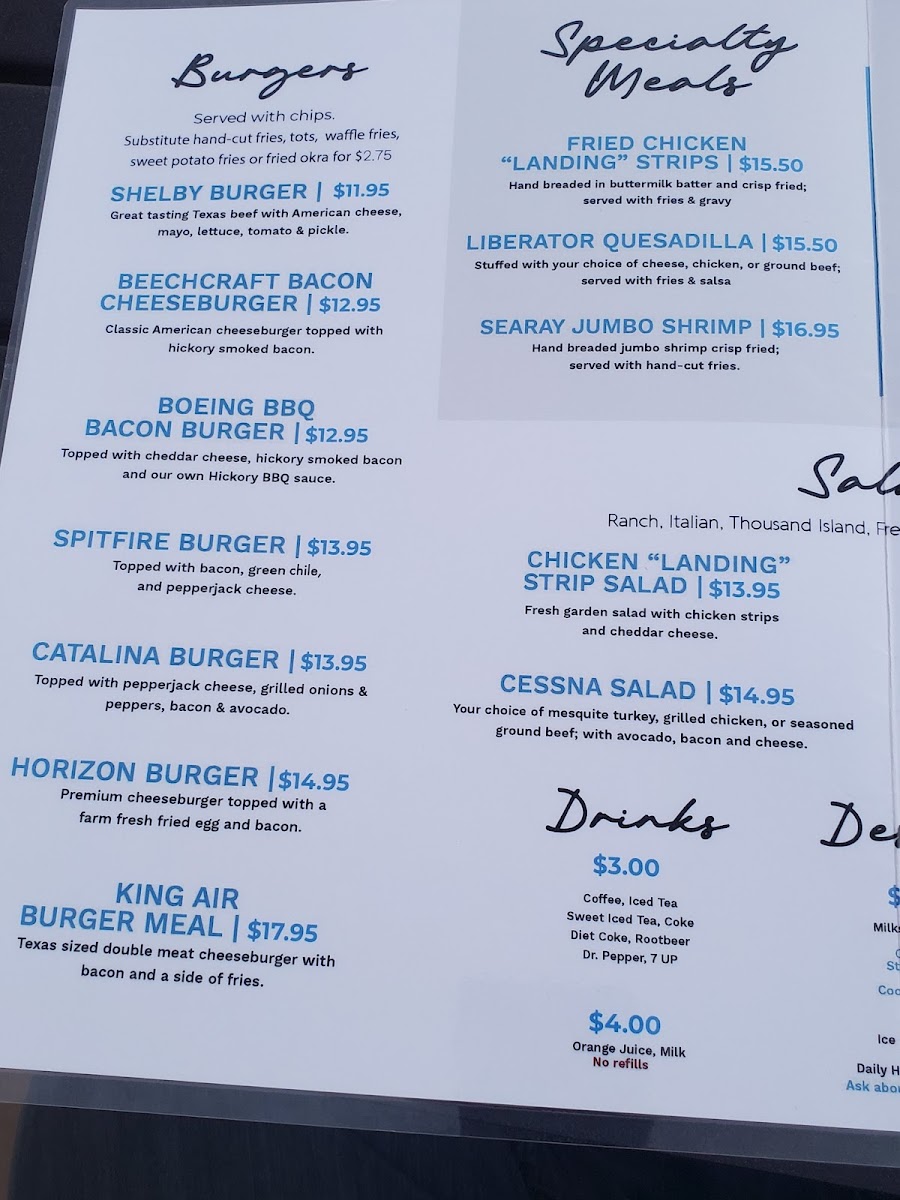 Burgers
Served with chips.
Substitute hand-cut fries, tots, waffle fries,
sweet potato fries or fried okra for $2.75
SHELBY BURGER | $11.95
Great tasting Texas beef with American cheese,
mayo, lettuce, tomato & pickle.
BEECHCRAFT BACON
CHEESEBURGER | $12.95
Classic American cheeseburger topped with
hickory smoked bacon.
BOEING BBQ
BACON BURGER | $12.95
Topped with cheddar cheese, hickory smoked bacon
and our own Hickory BBQ sauce.
SPITFIRE BURGER | $13.95
Topped with bacon, green chile,
and pepperjack cheese.
CATALINA BURGER | $13.95
Topped with pepperjack cheese, grilled onions &
peppers, bacon & avocado.
HORIZON BURGER | $14.95
Premium cheeseburger topped with a
farm fresh fried egg and bacon.
KING AIR
BURGER MEAL | $17.95
Texas sized double meat cheeseburger with
bacon and a side of fries.
Specialty
Meals
FRIED CHICKEN
“LANDING” STRIPS | $15.50
Hand breaded in buttermilk batter and crisp fried;
served with fries & gravy
LIBERATOR QUESADILLA | $15.50
Stuffed with your choice of cheese, chicken, or ground beef;
served with fries & salsa
SEARAY JUMBO SHRIMP | $16.95
Hand breaded jumbo shrimp crisp fried;
served with hand-cut fries.
Sal
Ranch, Italian, Thousand Island, Fre
CHICKEN “LANDING”
STRIP SALAD | $13.95
Fresh garden salad with chicken strips
and cheddar cheese.
CESSNA SALAD | $14.95
Your choice of mesquite turkey, grilled chicken, or seasoned
ground beef; with avocado, bacon and cheese.
Drinks
$3.00
Coffee, Iced Tea
Sweet Iced Tea, Coke
Diet Coke, Rootbeer
Dr. Pepper, 7 UP
$4.00
Orange Juice, Milk
No refills
De
$
Milks
St
Coo
Ice
Daily H
Ask abou